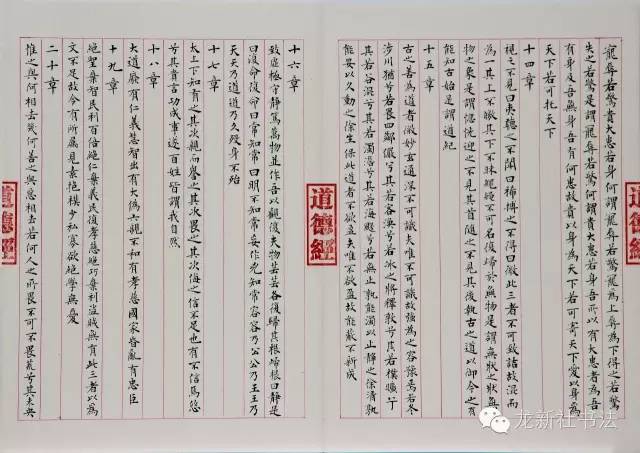 寵辱若驚貴大患若身何謂寵辱若驚寵為上辱為下得之若驚
失之若驚是謂寵辱若驚何謂貴大患若身吾所以有大患者為吾
有身及吾無身吾有何患故貴以身為天下若可寄天下愛以身為
天下若可托天下
十四章
視之不見曰夷聽之不聞曰稀搏之不得曰微此三者不可致詰故混而
為一其上不皦其下不昧繩繩不可名復歸於無物是謂無狀之狀無
物之象是謂惚恍迎之不見其首隨之不見其後執古之道以御今之有
能知古始是謂道紀
十五章
古之善為道者微妙玄通深不可識夫唯不可識故強為之容豫焉若冬
涉川猶兮若畏四鄰儼兮其若客渙兮若冰之將釋敦兮其若樸曠兮
其若谷混兮其若濁澹兮其若海飂兮若無止孰能濁以止靜之徐清孰
能安以久動之徐生保此道者不欲盈夫唯不欲盈故能蔽不新成
道德經
十六章
致虛極守靜篤萬物並作吾以觀復夫物芸芸各復歸其根歸根曰靜是
曰復命復命曰常知常曰明不知常妄作凶知常容容乃公公乃王王乃
天天乃道道乃久歿身不殆
十七章
太上下知有之其次親而譽之其次畏之其次侮之信不足也有不信焉悠
兮其貴言功成事遂百姓皆謂我自然
十八章
大道廢有仁義慧智出有大偽六親不和有孝慈國家昏亂有忠臣
十九章
絕聖棄智民利百倍絕仁棄義民復孝慈絕巧棄利盜賊無有此三者以為
文不足故令有所屬見素抱樸少私寡欲絕學無憂
二十章
惟之與阿相去幾何善之與惡相去若何人之所畏不可不畏荒兮其未央
道德經
道德經
龙新社书法